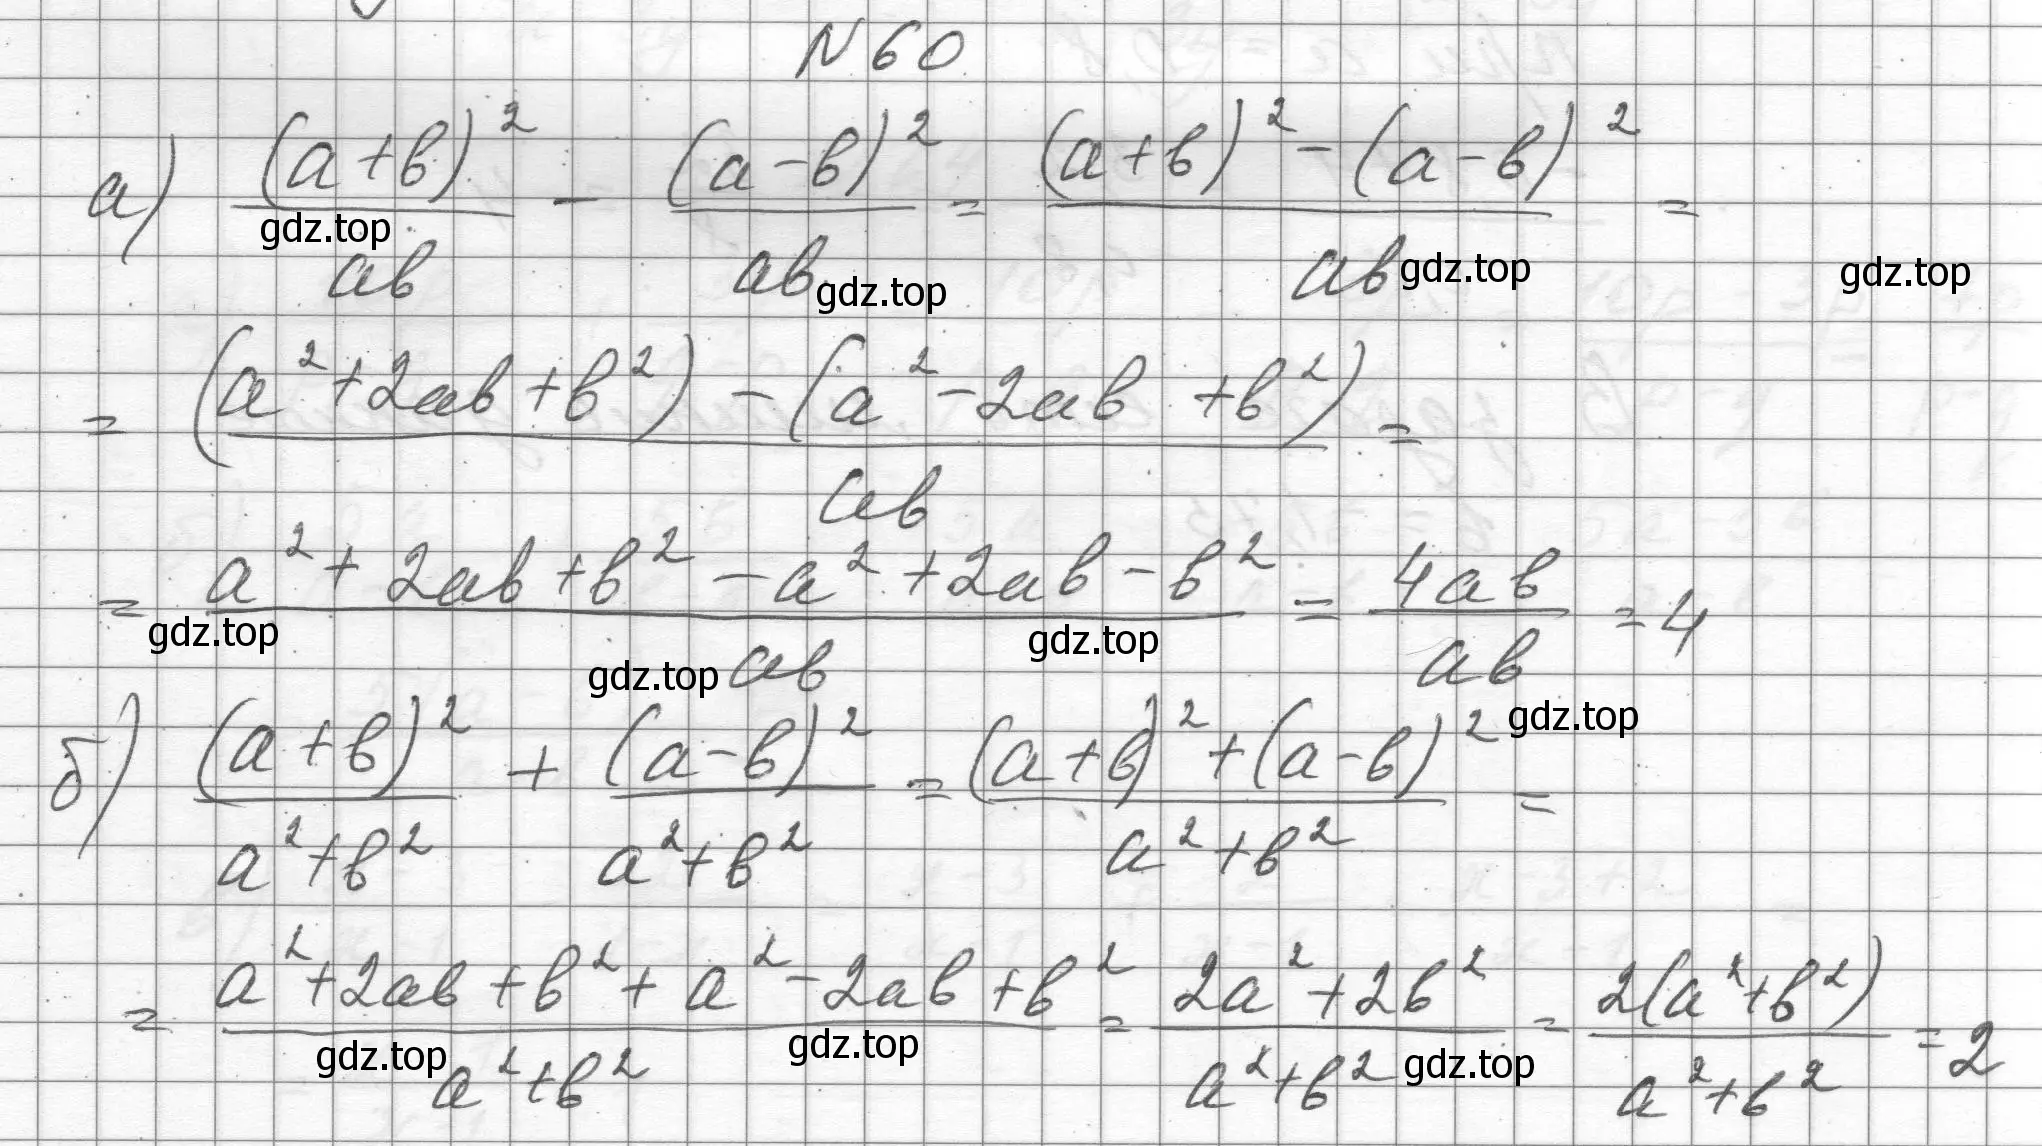 N 60
а) (a+b)²/ab - (a-b)²/ab = ((a+b)² - (a-b)²)/ab =
gdz.top gdz.top gdz.top gdz.top
= ((a²+2ab+b²) - (a²-2ab+b²))/ab =
= (a²+2ab+b²-a²+2ab-b²)/ab = 4ab/ab = 4
gdz.top gdz.top gdz.top gdz.top
б) (a+b)²/(a²+b²) + (a-b)²/(a²+b²) = ((a+b)²+(a-b)²)/(a²+b²) =
= (a²+2ab+b²+a²-2ab+b²)/(a²+b²) = (2a²+2b²)/(a²+b²) = 2(a²+b²)/(a²+b²) = 2
gdz.top gdz.top gdz.top